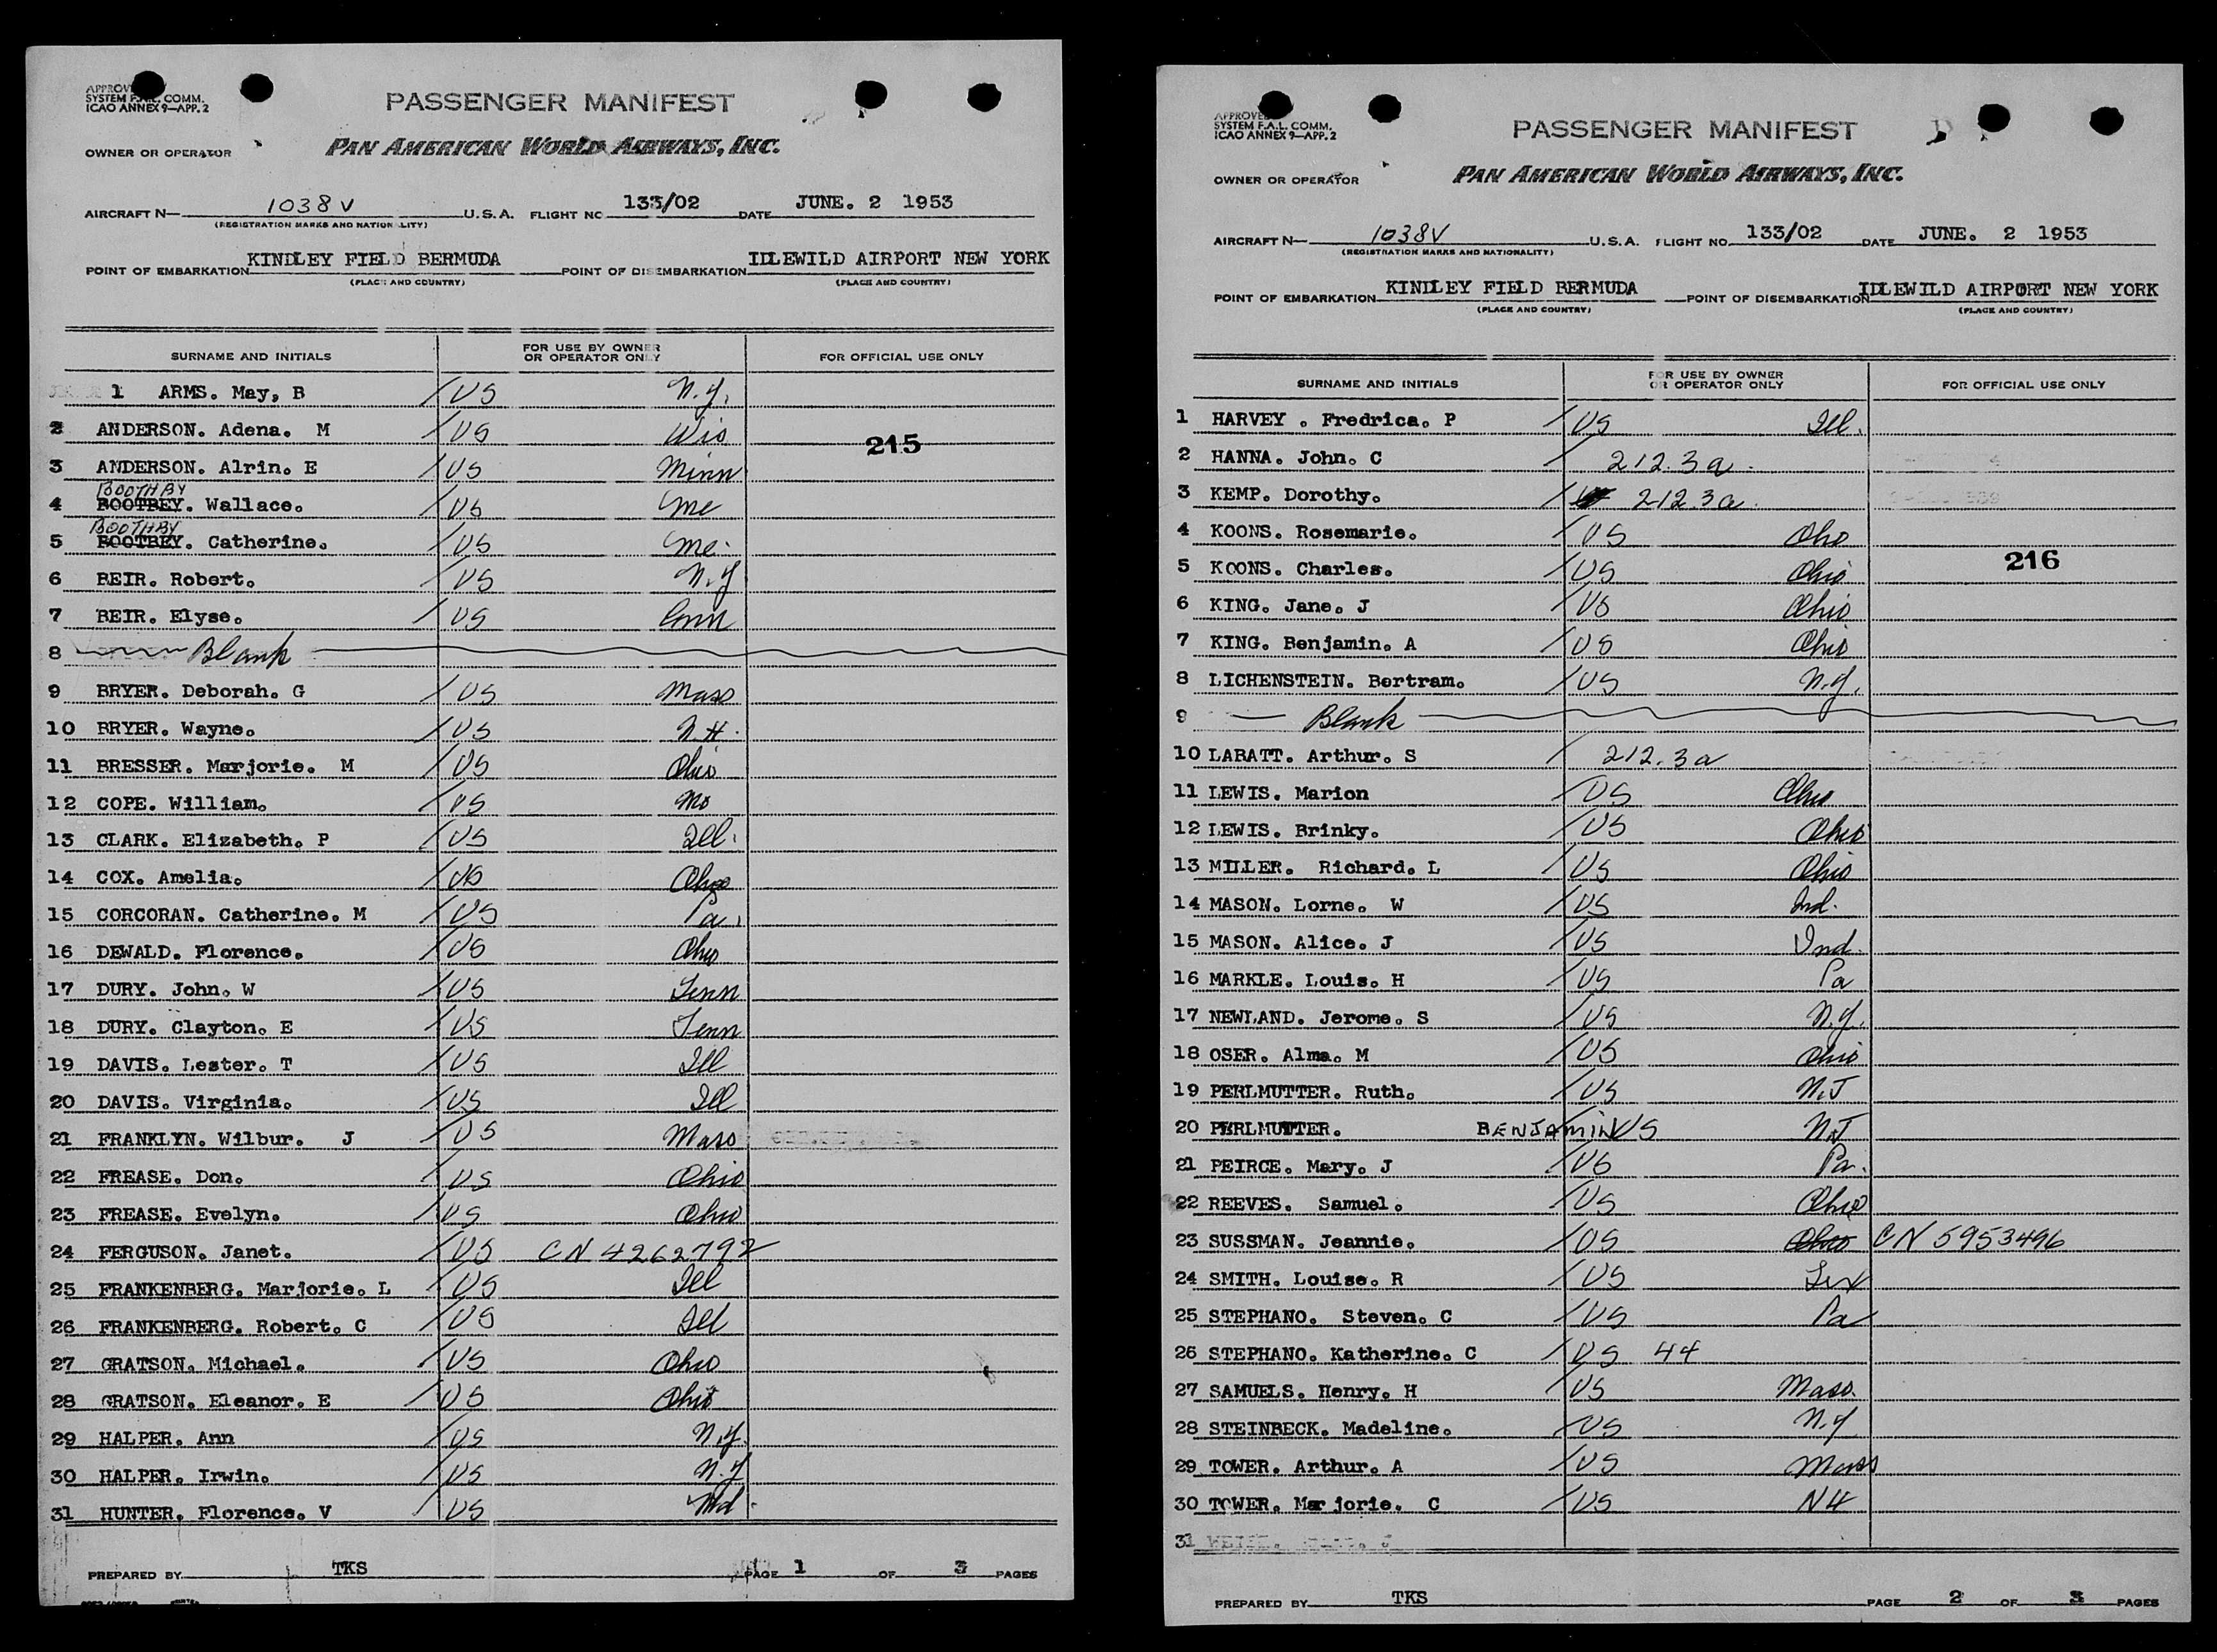 APPROVED
SYSTEM F.A.L. COMM.
ICAO ANNEX 9—APP. 2
PASSENGER MANIFEST
OWNER OR OPERATOR
PAN AMERICAN WORLD AIRWAYS, INC.
AIRCRAFT N— 1038V U.S.A. FLIGHT NO 133/02 DATE JUNE. 2 1953
(REGISTRATION MARKS AND NATIONALITY)
POINT OF EMBARKATION KINDLEY FIELD BERMUDA POINT OF DISEMBARKATION IDLEWILD AIRPORT NEW YORK
(PLACE AND COUNTRY) (PLACE AND COUNTRY)
SURNAME AND INITIALS FOR USE BY OWNER OR OPERATOR ONLY FOR OFFICIAL USE ONLY
1 ARMS. May, B / US N.Y.
2 ANDERSON. Adena. M / US Wis
215
3 ANDERSON. Alrin. E / US Minn
BOOTHBY
4 BOOTBEY. Wallace. / US Me
BOOTHBY
5 BOOTBEY. Catherine. / US Me.
6 BEIR. Robert. / US N.Y
7 BEIR. Elyse. / US Conn
8 Blank
9 BRYER. Deborah. G / US Mass
10 BRYER. Wayne. / US N.H.
11 BRESSER. Marjorie. M / US Ohio
12 COPE. William. / US Mo
13 CLARK. Elizabeth. P / US Ill.
14 COX. Amelia. / US Ohio
15 CORCORAN. Catherine. M / US Pa.
16 DEWALD. Florence. / US Ohio
17 DURY. John. W / US Tenn
18 DURY. Clayton. E / US Tenn
19 DAVIS. Lester. T / US Ill
20 DAVIS. Virginia. / US Ill
21 FRANKLYN. Wilbur. J / US Mass
22 FREASE. Don. / US Ohio
23 FREASE. Evelyn. / US Ohio
24 FERGUSON. Janet. / US CN 4262792
25 FRANKENBERG. Marjorie. L / US Ill
26 FRANKENBERG. Robert. C / US Ill
27 GRATSON. Michael. / US Ohio
28 GRATSON. Eleanor. E / US Ohio
29 HALPER. Ann / US N.Y.
30 HALPER. Irwin. / US N.Y
31 HUNTER. Florence. V / US Md.
PREPARED BY TKS PAGE 1 OF 3 PAGES
APPROVED
SYSTEM F.A.L. COMM.
ICAO ANNEX 9—APP. 2
PASSENGER MANIFEST
OWNER OR OPERATOR
PAN AMERICAN WORLD AIRWAYS, INC.
AIRCRAFT N— 1038V U.S.A. FLIGHT NO. 133/02 DATE JUNE. 2 1953
(REGISTRATION MARKS AND NATIONALITY)
POINT OF EMBARKATION KINDLEY FIELD BERMUDA POINT OF DISEMBARKATION IDLEWILD AIRPORT NEW YORK
(PLACE AND COUNTRY) (PLACE AND COUNTRY)
SURNAME AND INITIALS FOR USE BY OWNER OR OPERATOR ONLY FOR OFFICIAL USE ONLY
1 HARVEY . Fredrica. P / US Ill.
2 HANNA. John. C / 212.3a.
3 KEMP. Dorothy. / 212.3a.
4 KOONS. Rosemarie. / US Oho
5 KOONS. Charles. / US Ohio
216
6 KING. Jane. J / US Ohio
7 KING. Benjamin. A / US Ohio
8 LICHENSTEIN. Bertram. / US N.Y.
9 Blank
10 LABATT. Arthur. S / 212.3a
11 LEWIS. Marion / US Ohio
12 LEWIS. Brinky. / US Ohio
13 MILLER. Richard. L / US Ohio
14 MASON. Lorne. W / US Ind.
15 MASON. Alice. J / US Ind.
16 MARKLE. Louis. H / US Pa
17 NEWLAND. Jerome. S / US N.Y.
18 OSER. Alma. M / US Ohio
19 PERLMUTTER. Ruth. / US N.J
20 PERLMUTTER. BENJAMIN / US N.J
21 PEIRCE. Mary. J / US Pa.
22 REEVES. Samuel. / US Ohio
23 SUSSMAN. Jeannie. / US Ohio CN 5953496
24 SMITH. Louise. R / US Tex
25 STEPHANO. Steven. C / US Pa
26 STEPHANO. Katherine. C / US 44
27 SAMUELS. Henry. H / US Mass.
28 STEINBECK. Madeline. / US N.Y
29 TOWER. Arthur. A / US Mass
30 TOWER. Marjorie. C / US NH
31
PREPARED BY TKS PAGE 2 OF 3 PAGES